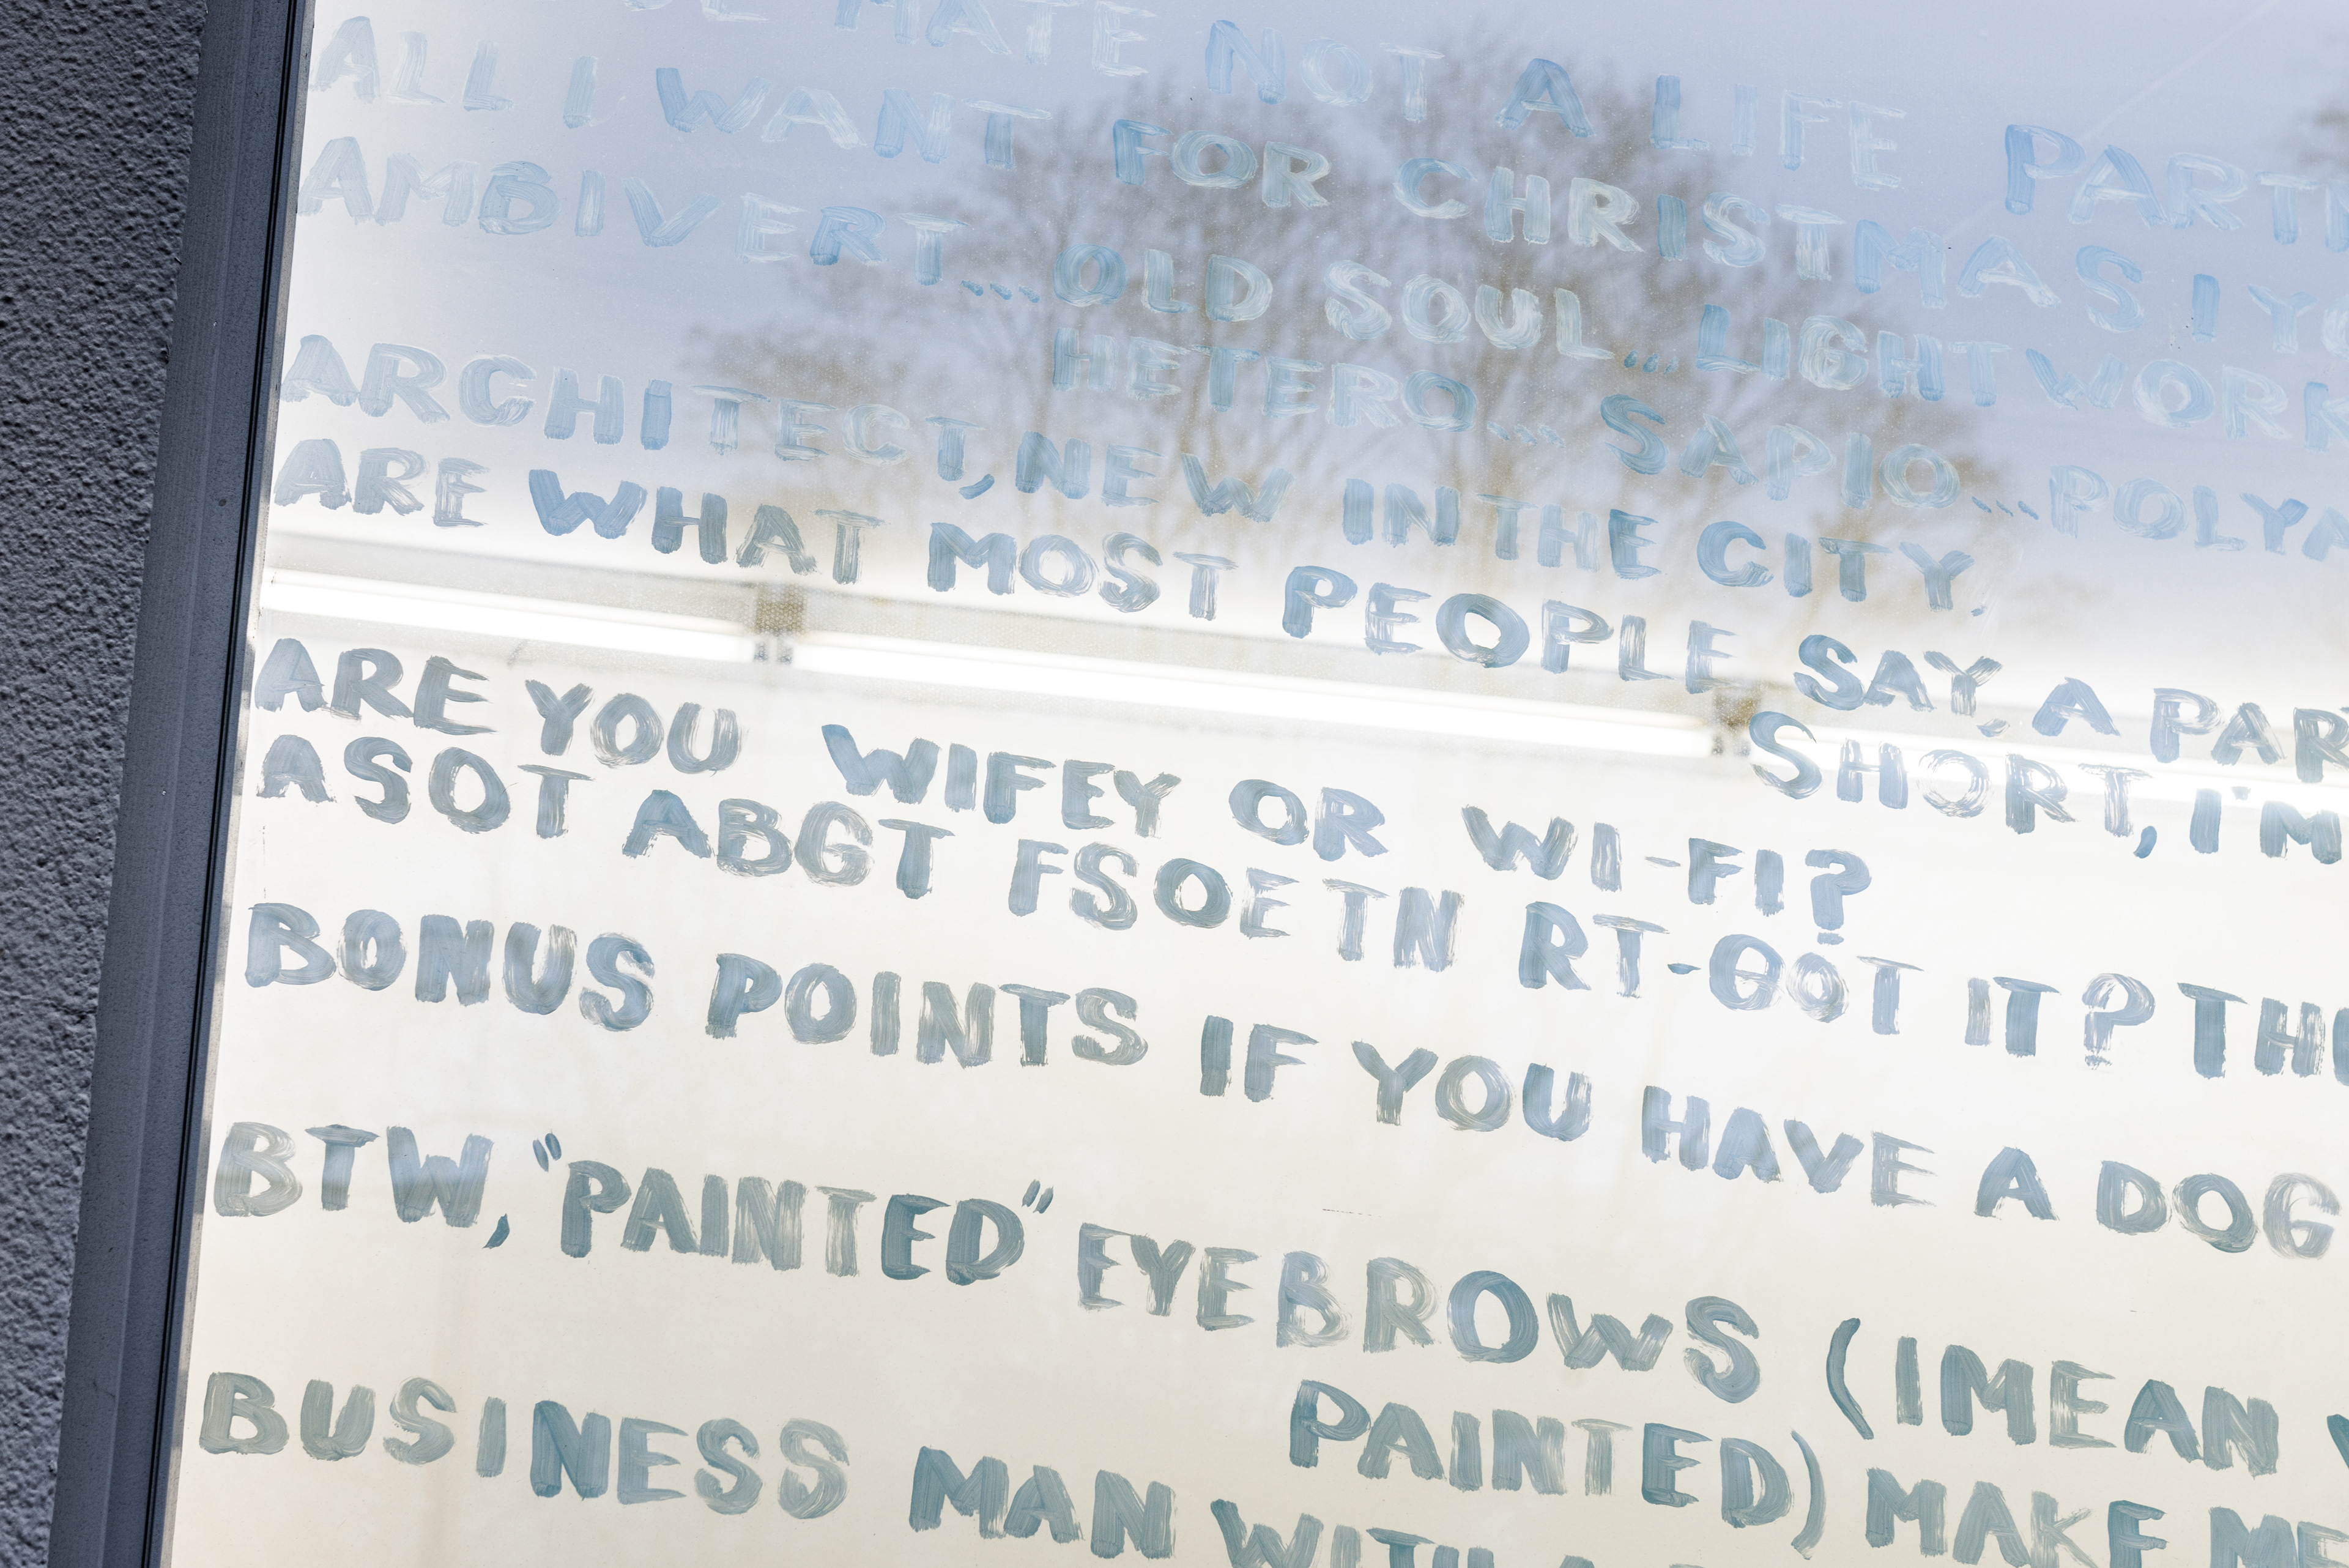 HATE NOT A LIFE
ALL I WANT FOR CHRISTMAS I
AMBIVERT... OLD SOUL... LIGHT
HETERO... SAPIO...
ARCHITECT, NEW IN THE CITY.
ARE WHAT MOST PEOPLE SAY, A
SHORT, I'M
ARE YOU WIFEY OR WI-FI?
ASOT ABGT FSOETN RT-GOT IT?
BONUS POINTS IF YOU HAVE A DOG
BTW, "PAINTED" EYEBROWS (I MEAN
PAINTED) MAKE
BUSINESS MAN WITH